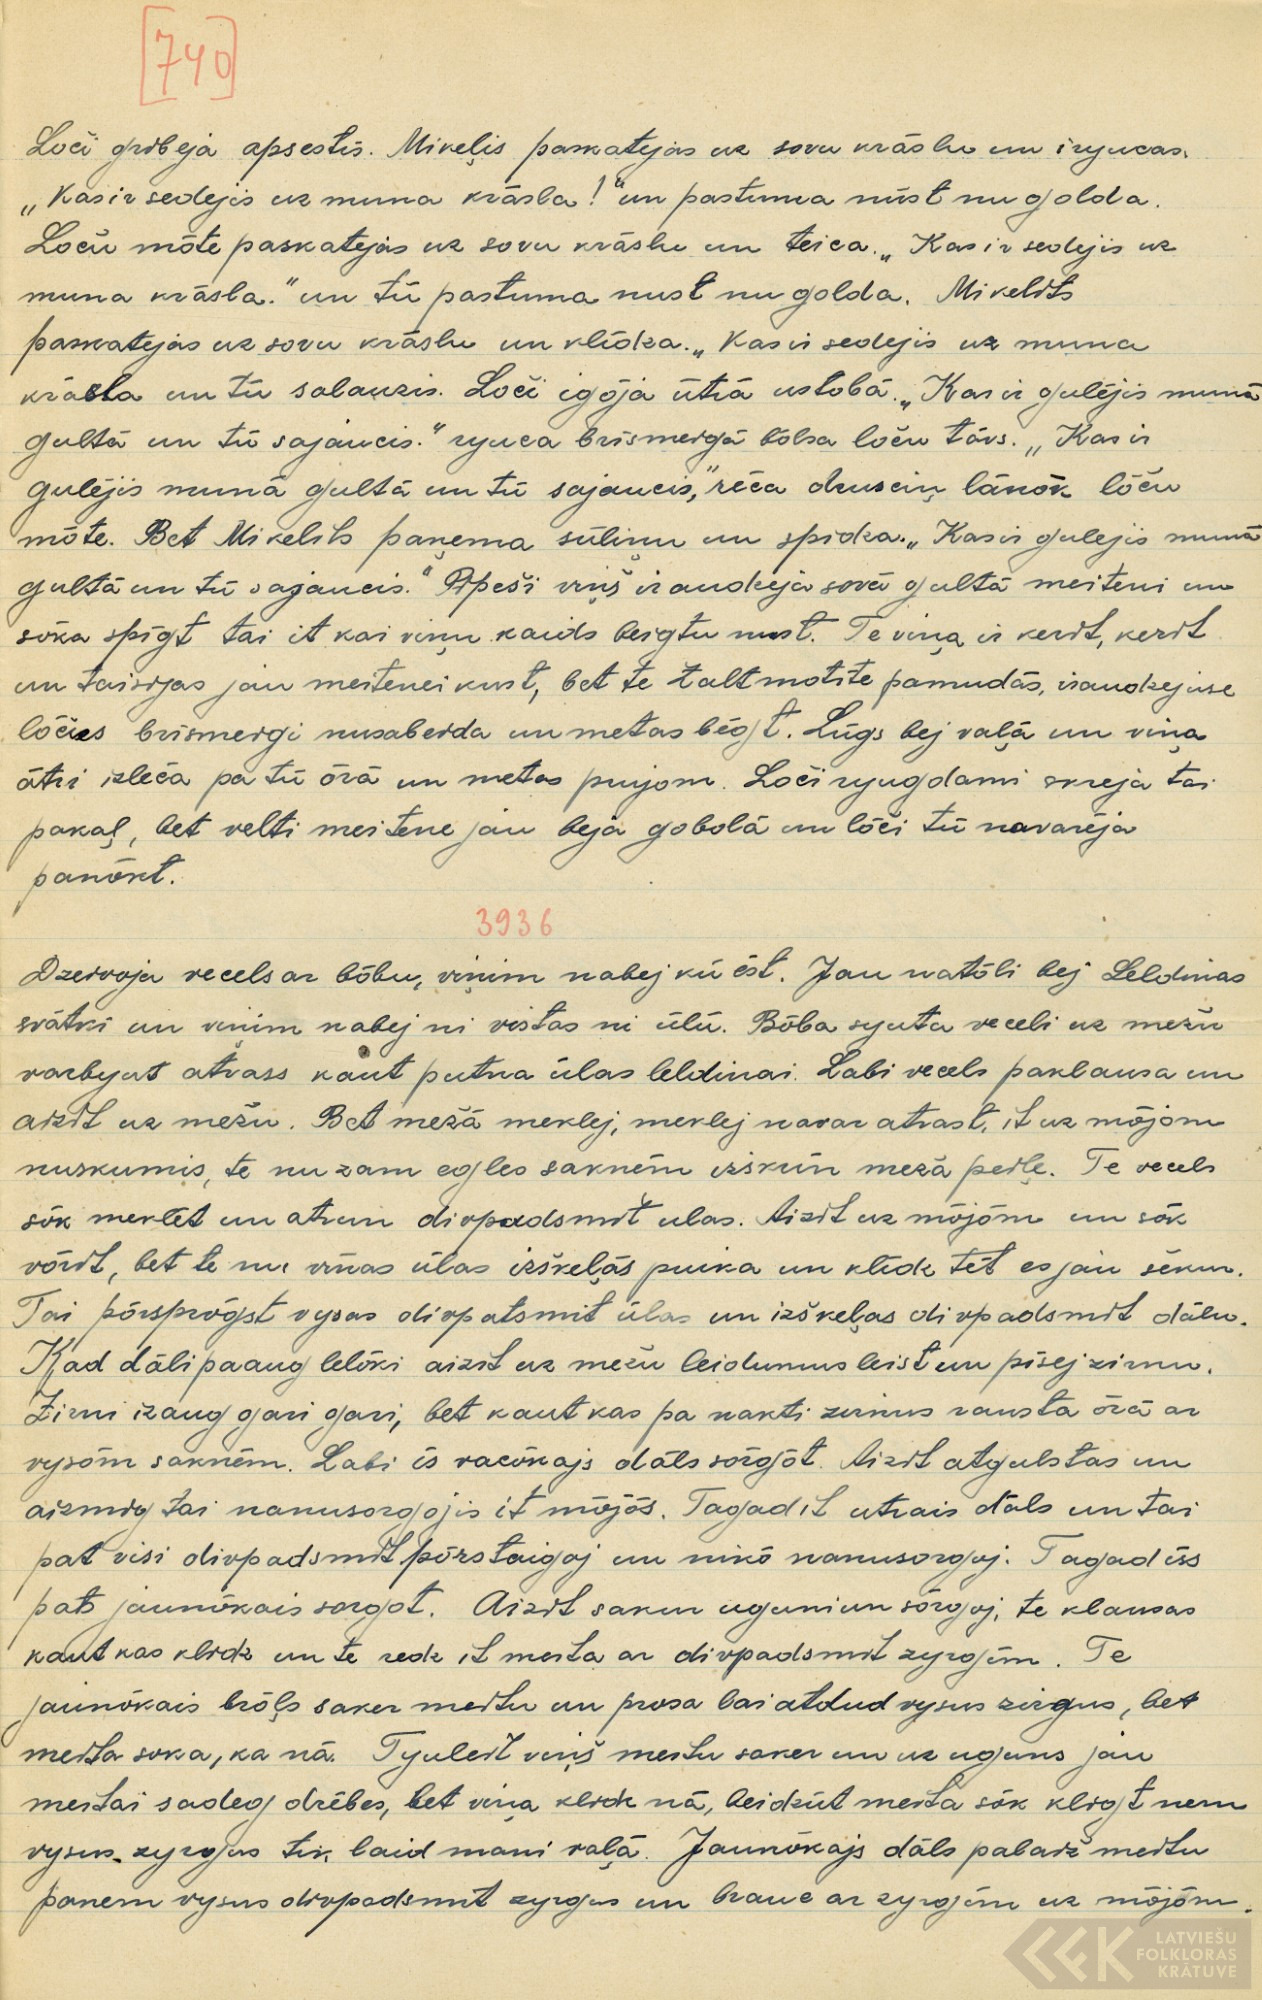 [740]
Loči gribeja apsestīs. Mikeļis paskatejās uz sovu krāslu un iryucas.
„Kas ir sedejis uz muna krāsla!" un pastuma nūst nu golda.
Loču mōte paskatejās uz sovu krāslu un teica. „Kas ir sedejis uz
muna krāsla." un tū pastuma nust nu golda. Mikelits
paskatejas uz sovu krāslu un klīdza. „Kas ir sedejis uz muna
krāsla un tū salauzis. Loči igōja ūtrā ustobā. „Kas ir gulējis munā
gultā un tū sajaucis." ryuca brīsmergā bolsa loču tāvs. „Kas ir
gulējis munā gultā un tū sajaucis," rēca druseiņ lānōk lōču
mōte. Bet Mikelits paņema sūliņu un spidza. „Kas ir gulejis munā
gultā un tū sajaucis." Pīpeši viņš iraudzeja sovā gultā meiteni un
sōka spīgt tai it kai viņu kaids beigtu nust. Te viņa ir kerit, kerit
un taisijas jau meitenei kust, bet te Zaltmotite pamudās, iraudzejuse
lōčus brīsmergi nusaberda un metas bēgt. Lūgs bej vaļā un viņa
ātri izlēca pa tū ōrā un metas prujom. Loči ryugdami skreja tai
pakaļ, bet velti meitene jau beja gobolā un lōči tū navarēja
panōkt.
3936
Dzeivoja vecels ar bōbu, viņim nabej kū ēst. Jau natōli bej Leldinas
svātki un viņim nabej ni vistas ni ūlu. Bōba syuta veceli uz mežu
varbyut atrass kaut putna ūlas leldinai. Labi vecels paklausa un
aizit uz mežu. Bet mežā meklej, meklej navar atrast, it uz mōjom
nuskumis, te nu zam egles saknem izskrīn meža peile. Te vecels
sōk meklēt un atrun divpadsmit ulas. Aizit uz mōjōm un sōk
vōrit, bet te nu vinas ūlas izškeļās puika un klīdz tēt es jau šēkur.
Tai pōrsprōgst vysas divpatsmit ūlas un izškeļas divpadsmit dālu.
Kad dāli paaug lelōki aizit uz mežu leidumus leist un pīsej zirnu.
Zirni izaug gari gari, bet kaut kas pa nakti zirnus rausta ōrā ar
vysōm saknēm. Labi īs vacōkajs dāls sōrgōt. Aizit atgulstas un
aizmig tai nanusorgojis it mōjōs. Tagad it utrais dāls un tai
pat visi divpadsmit pōrstaigoj un nikō nanusorgoj. Tagad īss
pats jaunōkais sorgot. Aizit sakur uguni un sōrgoj, te klausas
kaut kas klidz un te redz it meita ar divpadsmit zyrgim. Te
jaunōkais brōļs saker meitu un prosa lai atdud vysus zirgus, bet
meita soka, ka nā. Tyuleit viņš meitu saker un uz uguns jau
meitai sadeg drēbes, bet viņa klidz nā, beidzūt meita sōk kligt nem
vysus zyrgus tik laid mani vaļā. Jaunōkajs dāls palaiž meitu
panem vysus divpadsmit zyrgus un brauc ar zyrgim uz mōjōm.
LATVIEŠU
FOLKLORAS
KRĀTUVE